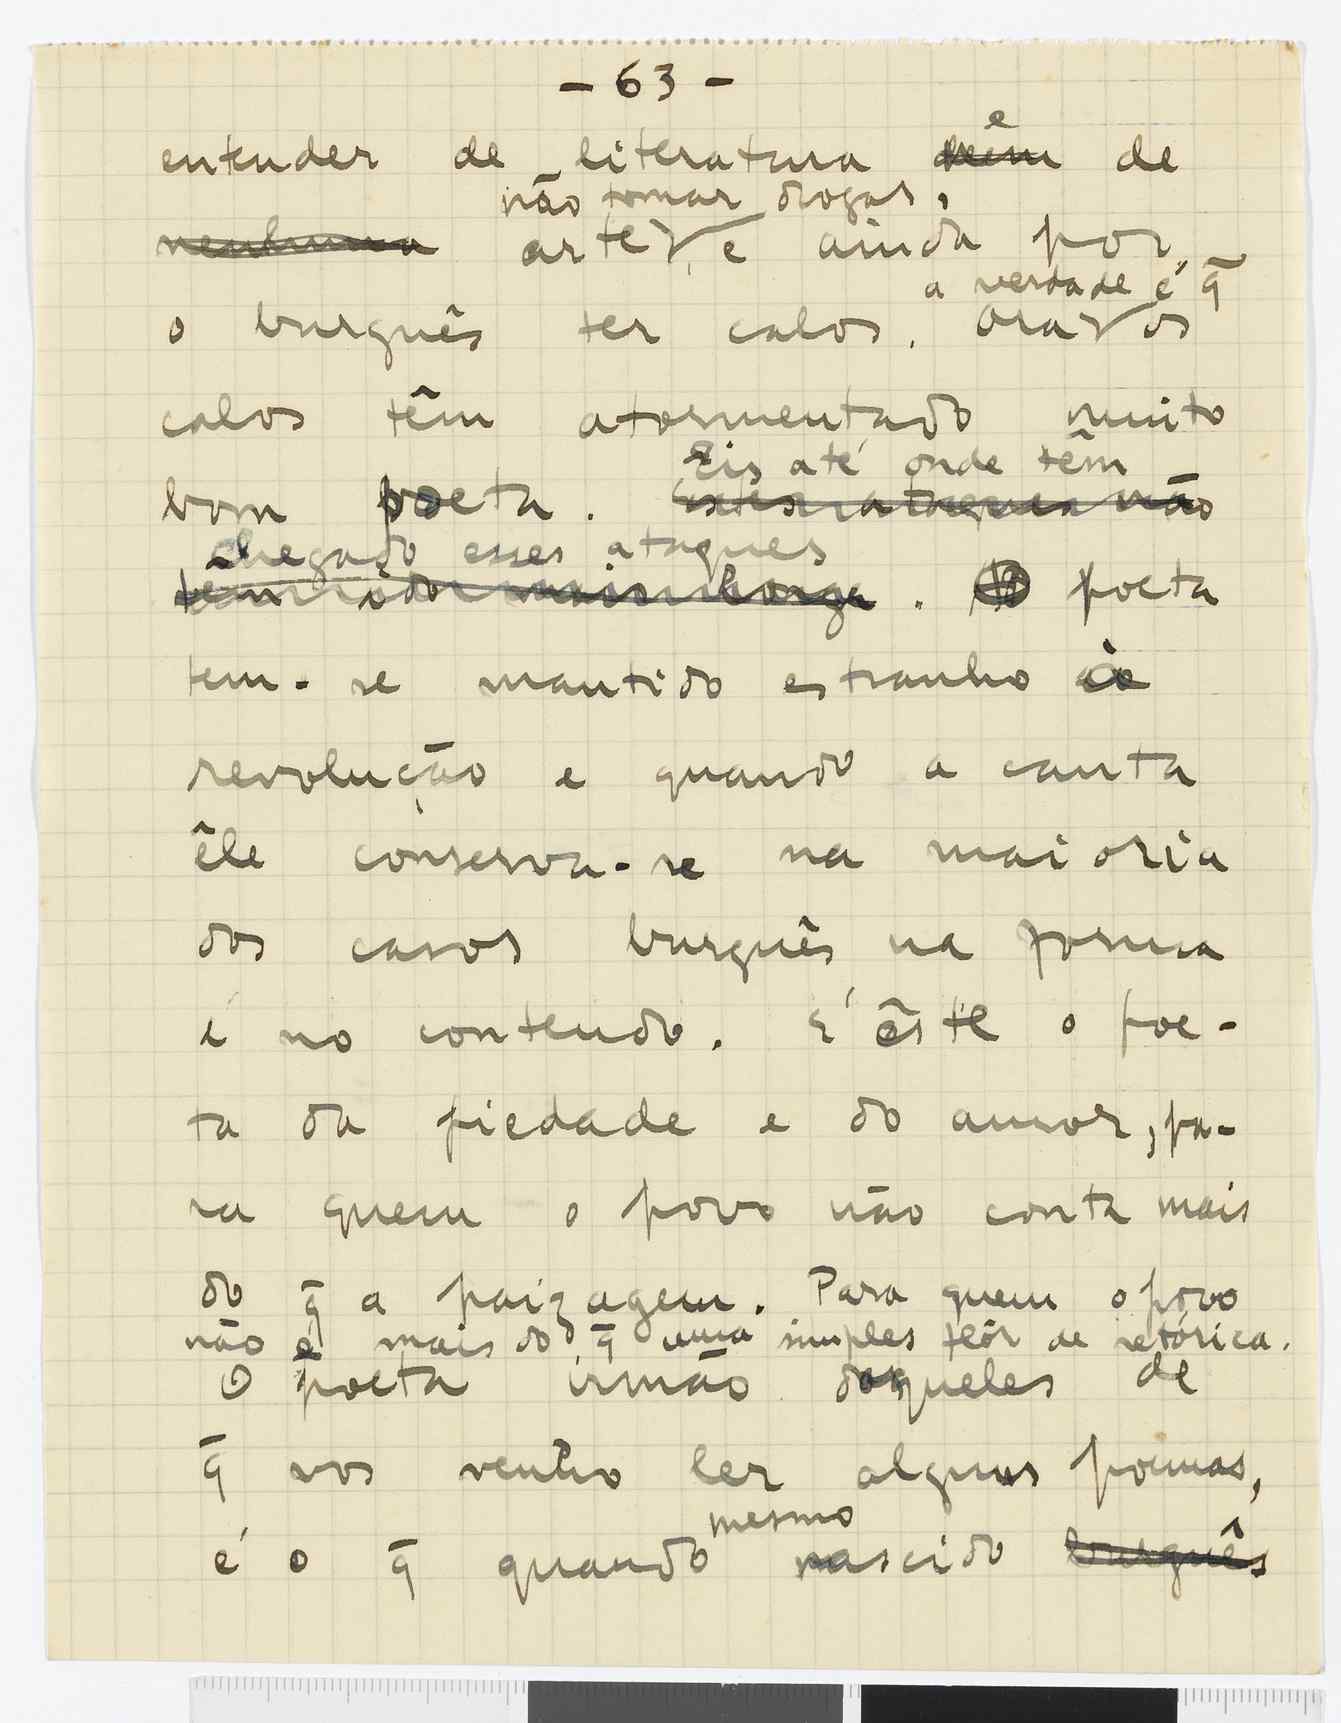 - 63 -
e
entender de literatura nem de
não tomar drogas,
nenhuma arte, e ainda por
a verdade é q̄
o burguês ter calos. Ora os
calos têm atormentado muito
Eis até onde têm
bom poeta. Estes ataques não
chegado esses ataques
têm ido mais longe. O poeta
tem-se mantido estranho à
revolução e quando a canta
êle conserva-se na maioria
dos casos burguês na forma
e no conteudo. E' êste o poe-
ta da piedade e do amor, pa-
ra quem o povo não conta mais
do q̄ a paizagem. Para quem o povo
não é mais do q̄ uma simples flôr de retórica.
O poeta irmão daqueles de
q̄ vos venho ler alguns poemas,
mesmo
é o q̄ quando nascido burguês